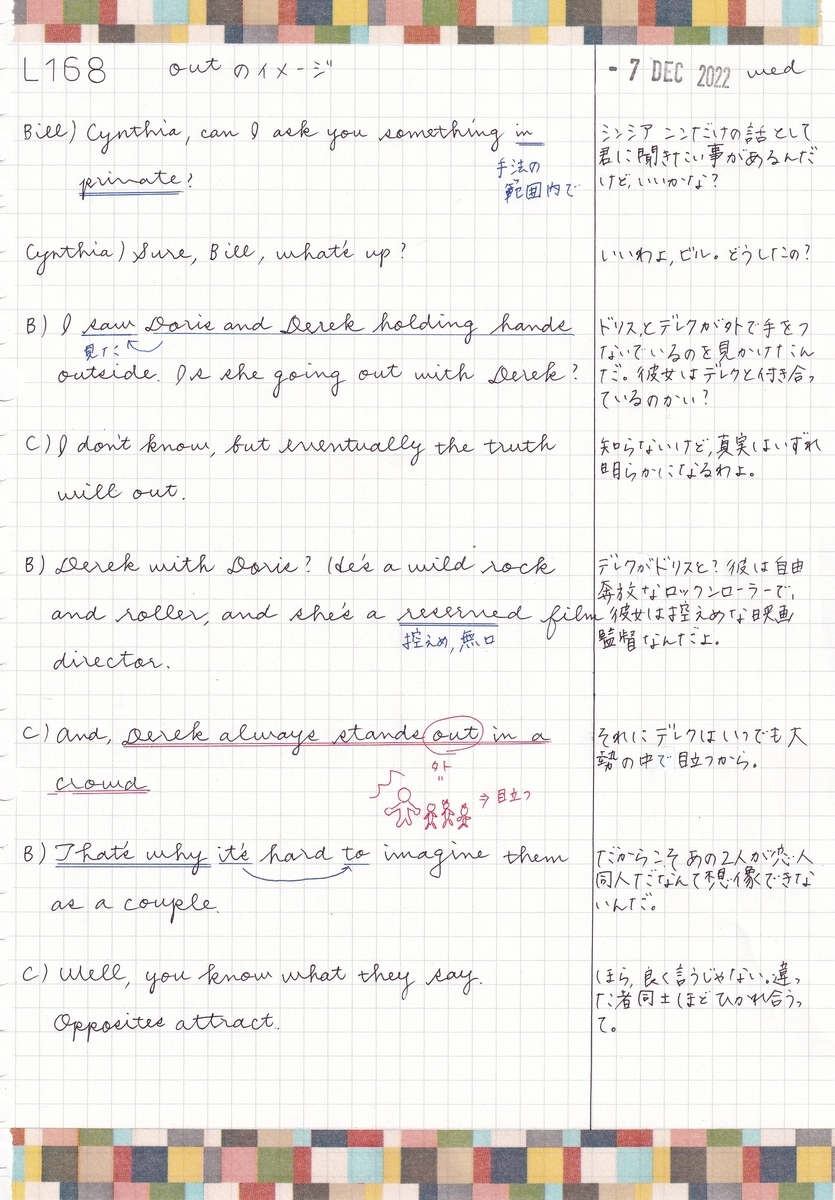 L168 outのイメージ - 7 DEC 2022 wed
Bill) Cynthia, can I ask you something in
private?
手法の
範囲内で
シンシア ここだけの話として
君に聞きたい事があるんだ
けど,いいかな?
Cynthia) Sure, Bill, what's up?
いいわよ,ビル。どうしたの?
B) I saw Doris and Derek holding hands
見た
outside. Is she going out with Derek?
ドリスとデレクが外で手をつ
ないでいるのを見かけたん
だ。彼女はデレクと付き合っ
ているのかい?
C) I don't know, but eventually the truth
will out.
知らないけど,真実はいずれ
明らかになるわよ。
B) Derek with Doris? He's a wild rock
and roller, and she's a reserved film
控えめ,無口
director.
デレクがドリスと?彼は自由
奔放なロックンローラーで,
彼女は控えめな映画
監督なんだよ。
C) And, Derek always stands out in a
外
crowd
⇒目立つ
それにデレクはいつでも大
勢の中で目立つから。
B) That's why it's hard to imagine them
as a couple.
だからこそあの2人が恋人
同人だなんて想像できな
いんだ。
C) Well, you know what they say.
Opposites attract.
ほら,良く言うじゃない。違っ
た者同士ほどひかれ合うっ
て。